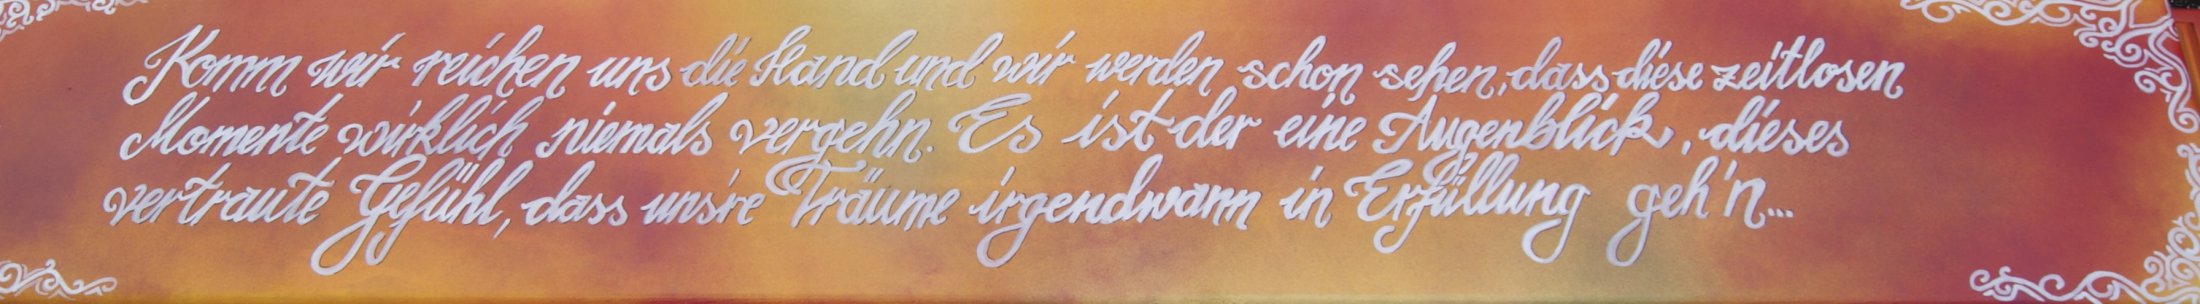 Komm wir reichen uns die Hand und wir werden schon sehen, dass diese zeitlosen
Momente wirklich niemals vergehn. Es ist der eine Augenblick, dieses
vertraute Gefühl, dass uns're Träume irgendwann in Erfüllung geh'n...